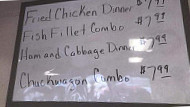 Fried Chicken Dinner $7.99
Fish Fillet Combo $7.99
Ham and Cabbage Dinner $7.99
Chuckwagon Combo $7.99